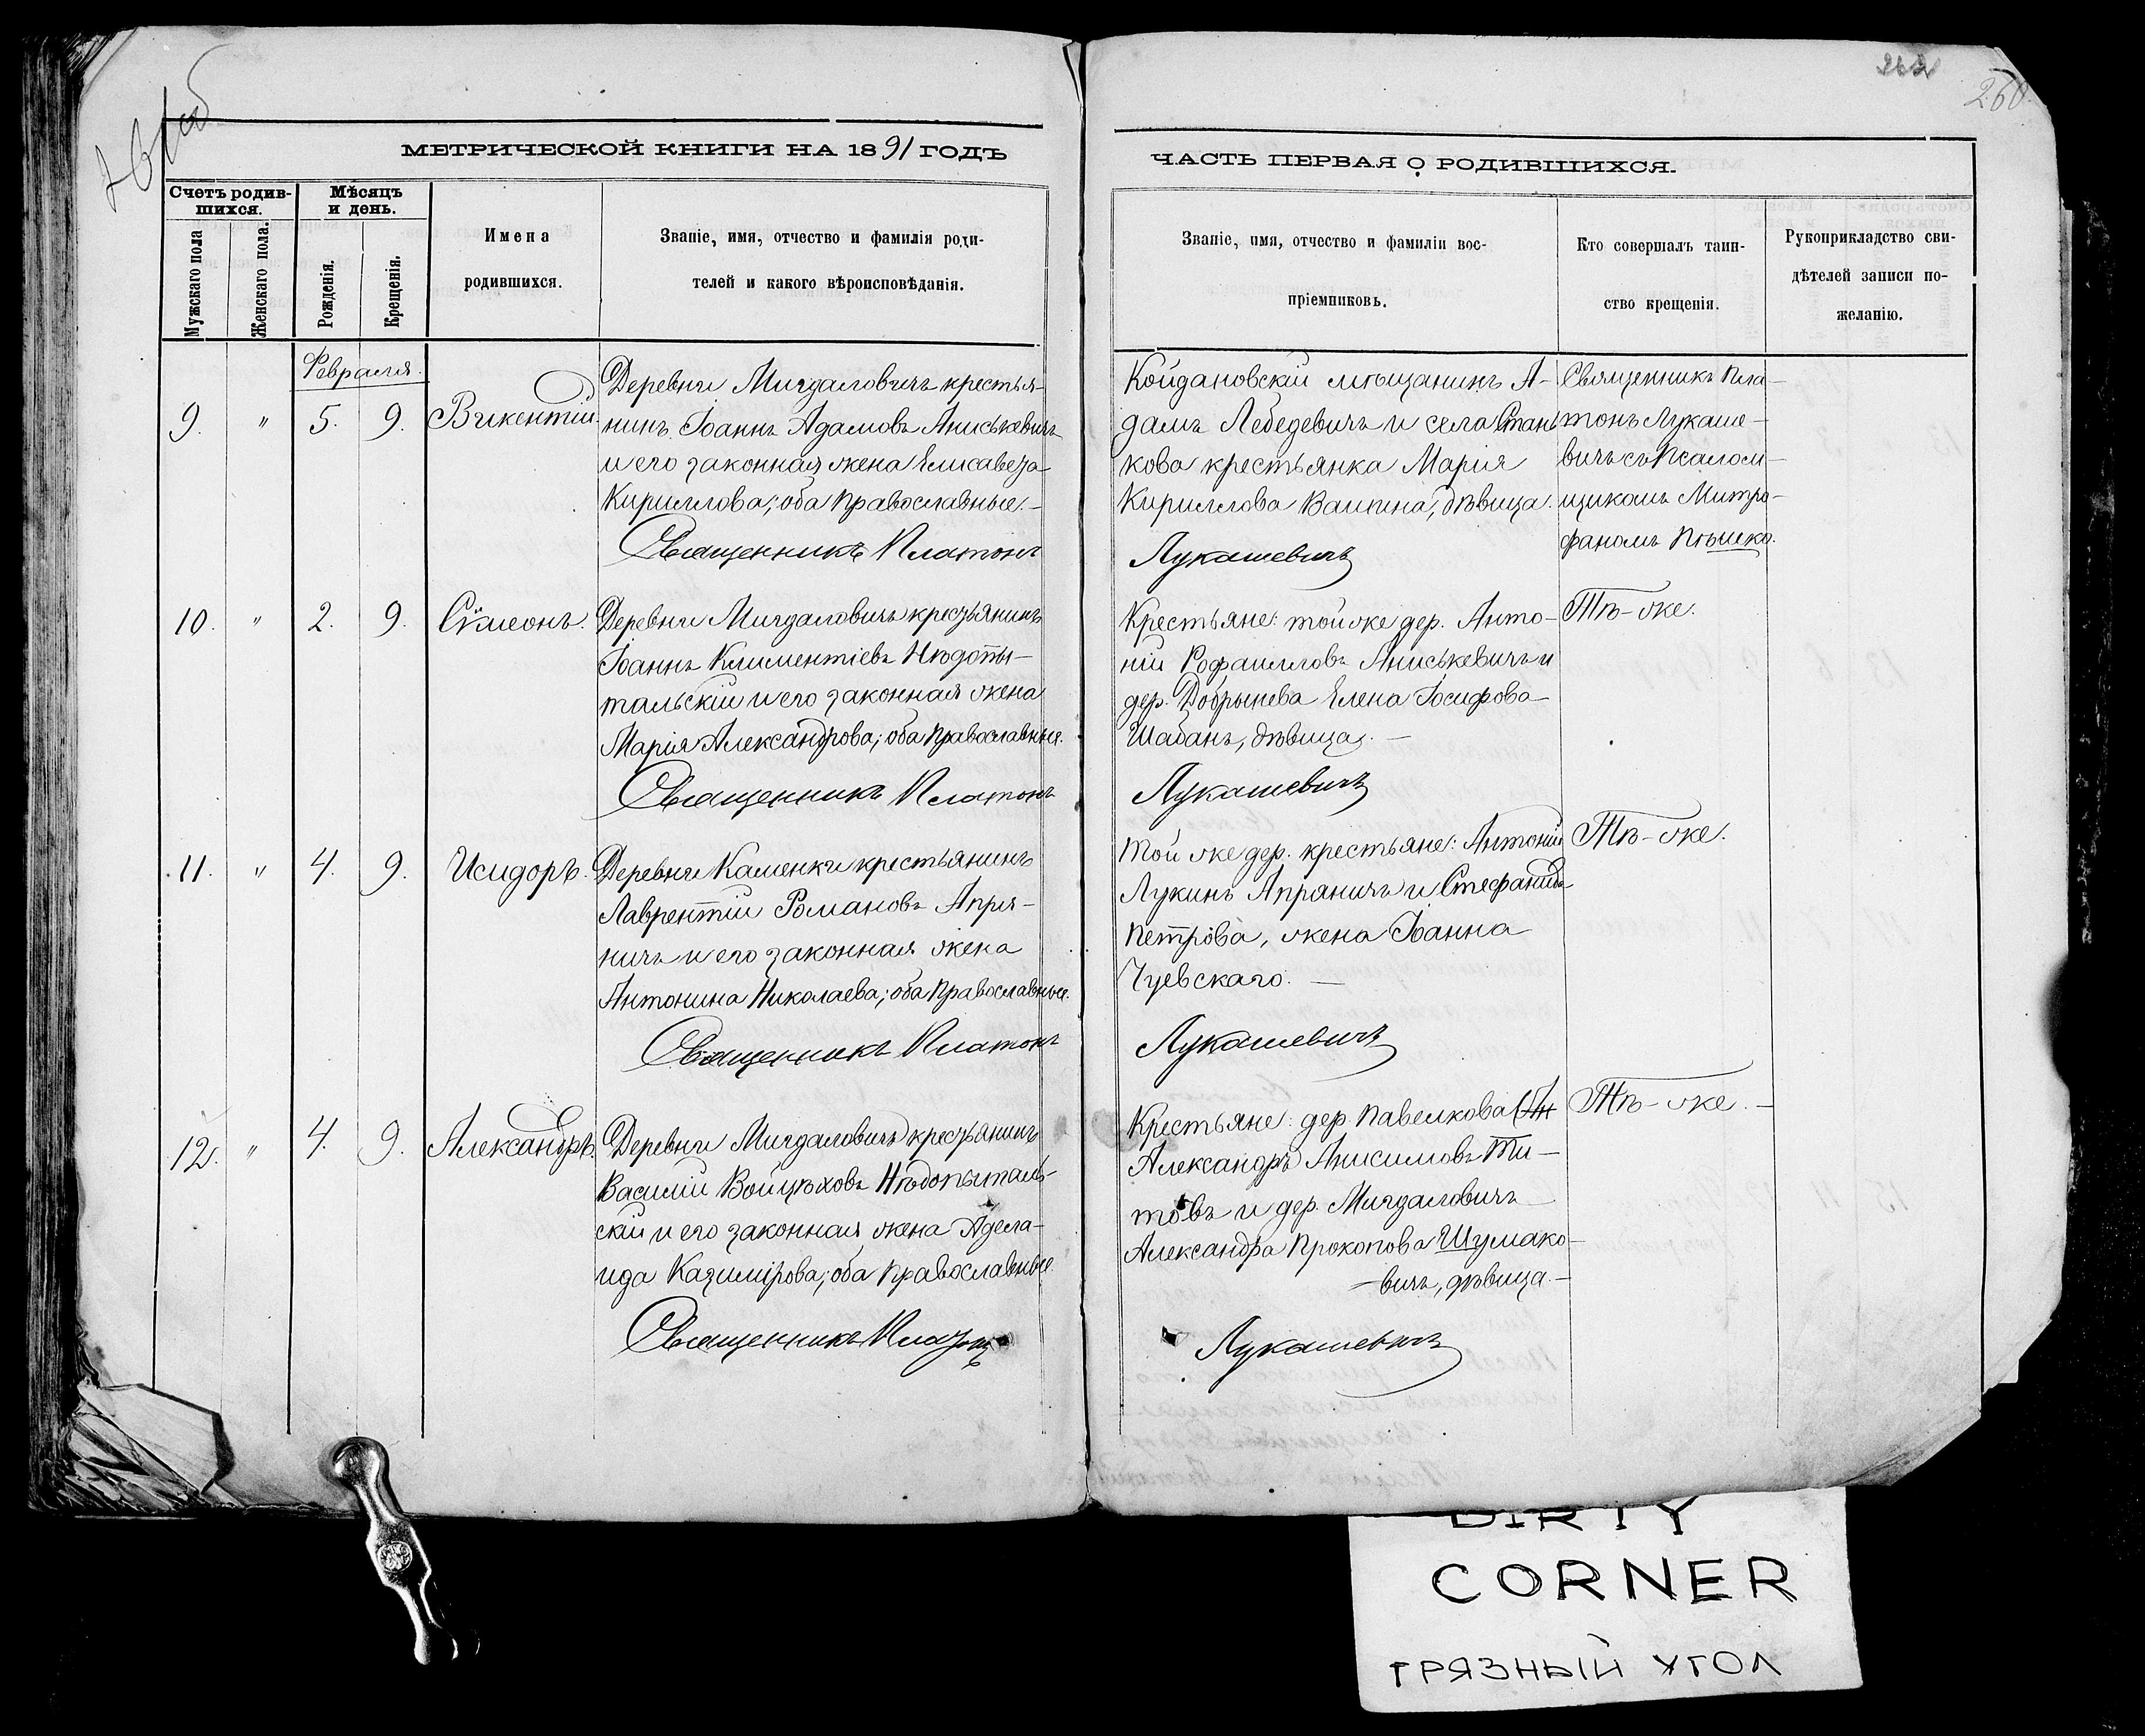 262
260
МЕТРИЧЕСКОЙ КНИГИ НА 1891 ГОДЪ
ЧАСТЬ ПЕРВАЯ О РОДИВШИХСЯ.
Счетъ родив-
шихся.
Мужскаго пола
Женскаго пола.
Мѣсяцъ
и день.
Рожденія.
Крещенія.
Имена
родившихся.
Званіе, имя, отчество и фамилія роди-
телей и какого вѣроисповѣданія.
Званіе, имя, отчество и фамиліи вос-
пріемниковъ.
Кто совершалъ таин-
ство крещенія.
Рукоприкладство сви-
дѣтелей записи по-
желанію.
Февраля.
9. " 5. 9. Викентій.
Деревни Мигдаловичъ крестья-
нинъ Іоаннъ Адамовъ Аниськевичъ
и его законная жена Елисавета
Кириллова; оба православные.-
Священникъ Платонъ
Койдановскій мѣщанинъ А-
дамъ Лебедевичъ и села Стань
кова крестьянка Марія
Кириллова Вашина, дѣвица.
Лукашевичъ
Священникъ Пла-
тонъ Лукаше-
вичъ съ Псалом-
щикомъ Митро-
фаномъ Пѣшко.
10. " 2. 9. Сѵмеонъ.
Деревни Мигдаловичъ крестьянинъ
Іоаннъ Климентіевъ Нѣдопы-
тальскій и его законная жена
Марія Александрова; оба православные.
Священникъ Платонъ
Крестьяне: той же дер. Анто-
ній Рофаиловъ Аниськевичъ и
дер. Добрынева Елена Іосифова
Шабанъ, дѣвица. -
Лукашевичъ
Тѣ-же.
11. " 4. 9. Исидоръ.
Деревни Каменки крестьянинъ
Лаврентій Романовъ Апря-
ничъ и его законная жена
Антонина Николаева; оба православные.
Священникъ Платонъ
Той же дер. крестьяне: Антоній
Лукинъ Апряничъ и Стефанида
Петрова, жена Іоанна
Чуевскаго. -
Лукашевичъ
Тѣ-же.
12. " 4. 9. Александръ.
Деревни Мигдаловичъ крестьянинъ
Василій Войцѣховъ Нѣдопыталь-
скій и его законная жена Адела-
ида Казимірова; оба православные.
Священникъ Платонъ
Крестьяне: дер. Павелкова (Ан
Александръ Анисимовъ Ти-
товъ и дер. Мигдаловичъ
Александра Прокопова Шумако-
-вичъ, дѣвица.-
Лукашевичъ
Тѣ-же. -
DIRTY
CORNER
ГРЯЗНЫЙ УГОЛ